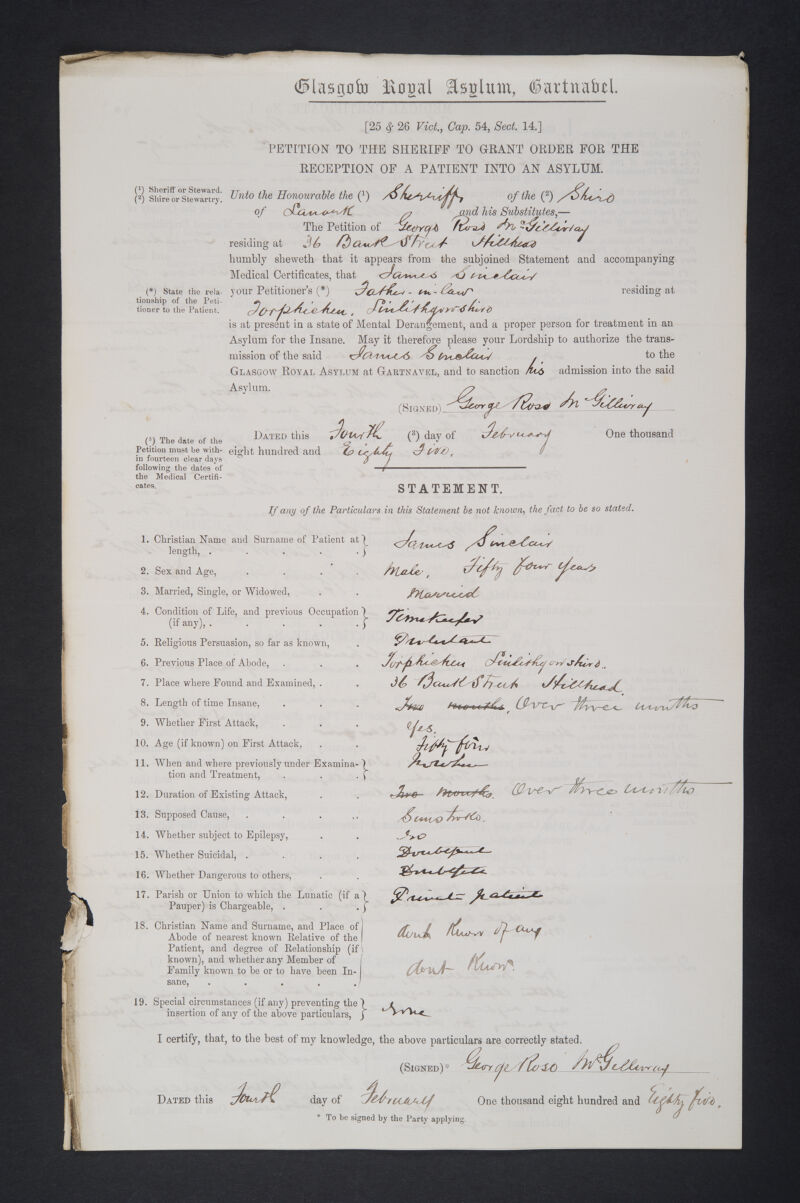 Glasgow Royal Asylum, Gartnavel.
[25 & 26 Vict., Cap. 54, Sect. 14.]
PETITION TO THE SHERIFF TO GRANT ORDER FOR THE
RECEPTION OF A PATIENT INTO AN ASYLUM.
(1) Sheriff or Steward.
(2) Shire or Stewartry.
Unto the Honourable the (1) Sheriff of the (2) Shire
of Lanark and his Substitutes,—
The Petition of George Ross McGillivray
residing at 36 Bank Street Hillhead
humbly sheweth that it appears from the subjoined Statement and accompanying
Medical Certificates, that James Sinclair
(*) State the rela-
tionship of the Peti-
tioner to the Patient.
your Petitioner's (*) Father-in-law residing at
Torphichen, Linlithgowshire
is at present in a state of Mental Derangement, and a proper person for treatment in an
Asylum for the Insane. May it therefore please your Lordship to authorize the trans-
mission of the said James Sinclair to the
GLASGOW ROYAL ASYLUM at GARTNAVEL, and to sanction his admission into the said
Asylum.
(SIGNED) George Ross McGillivray
(3) The date of the
Petition must be with-
in fourteen clear days
following the dates of
the Medical Certifi-
cates.
DATED this Fourth (3) day of February One thousand
eight hundred and Eighty Five.
STATEMENT.
If any of the Particulars in this Statement be not known, the fact to be so stated.
1. Christian Name and Surname of Patient at
length, . . . . . James Sinclair
2. Sex and Age, . . . . Male, Fifty four years
3. Married, Single, or Widowed, . . Married
4. Condition of Life, and previous Occupation
(if any), . . . . . Timekeeper
5. Religious Persuasion, so far as known, . Protestant
6. Previous Place of Abode, . . . Torphichen Linlithgowshire.
7. Place where Found and Examined, . . 36 Bank Street Hillhead
8. Length of time Insane, . . . Two months, Over three months
9. Whether First Attack, . . . Yes.
10. Age (if known) on First Attack, . . Fifty four
11. When and where previously under Examina-
tion and Treatment, . . . . Nowhere
12. Duration of Existing Attack, . . Two months. Over three months
13. Supposed Cause, . . . . Sunstroke.
14. Whether subject to Epilepsy, . . No
15. Whether Suicidal, . . . . Doubtful
16. Whether Dangerous to others, . . Doubtful
17. Parish or Union to which the Lunatic (if a
Pauper) is Chargeable, . . . Private patient
18. Christian Name and Surname, and Place of
Abode of nearest known Relative of the
Patient, and degree of Relationship (if
known), and whether any Member of
Family known to be or to have been In-
sane, . . . . .
dont know of any
dont know
19. Special circumstances (if any) preventing the
insertion of any of the above particulars, None
I certify, that, to the best of my knowledge, the above particulars are correctly stated.
(SIGNED)* George Ross McGillivray
DATED this Fourth day of February One thousand eight hundred and Eighty five.
* To be signed by the Party applying.